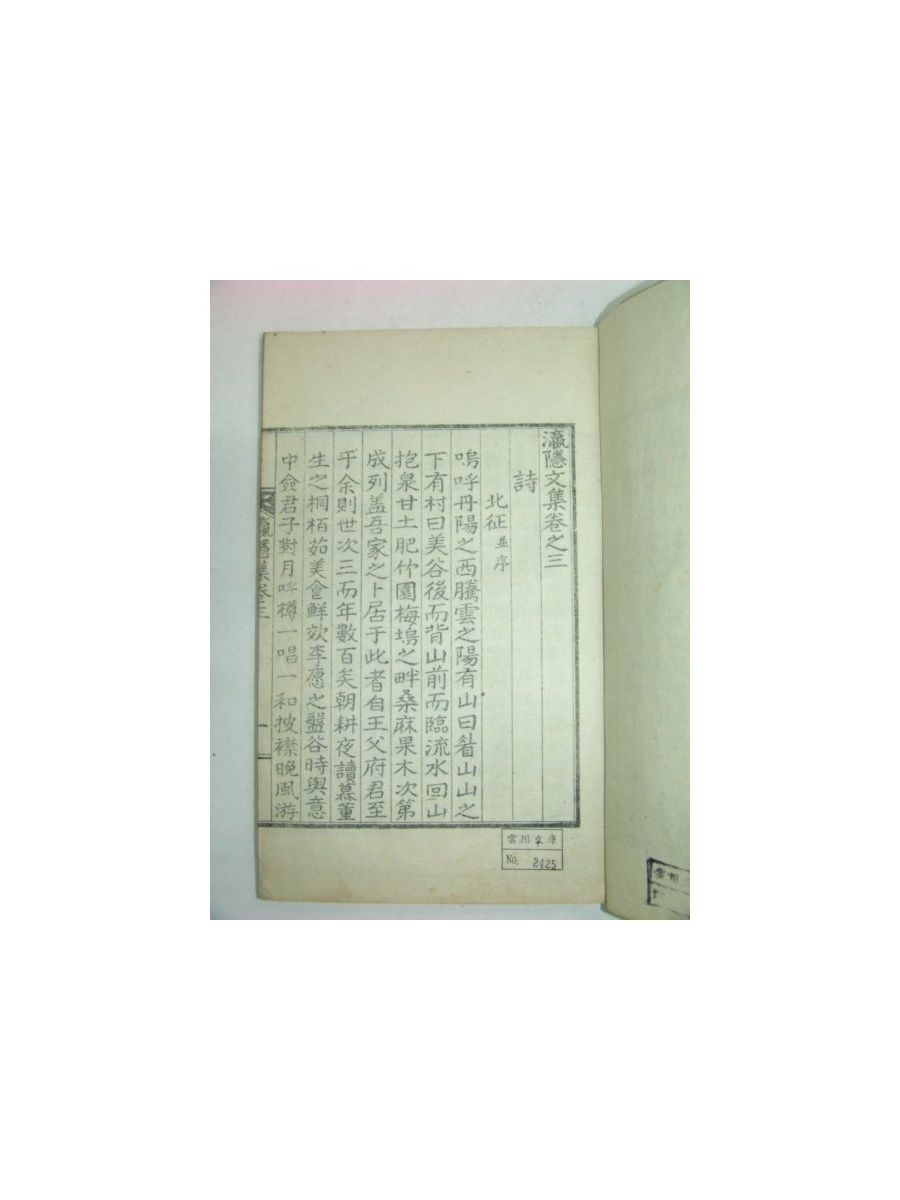 瀛隱文集卷之三
詩
北征並序
嗚呼丹陽之西騰雲之陽有山曰眉山山之
下有村曰美谷後而背山前而臨流水回山
抱泉甘土肥竹園梅塢之畔桑麻果木次第
成列盖吾家之卜居于此者自王父府君至
于余則世次三而年數百矣朝耕夜讀慕董
生之桐栢茹美食鮮效李愿之盤谷時與意
中僉君子對月呼樽一唱一和披襟晚風游
瀛隱集卷三
一
雲川文庫
No. 2425